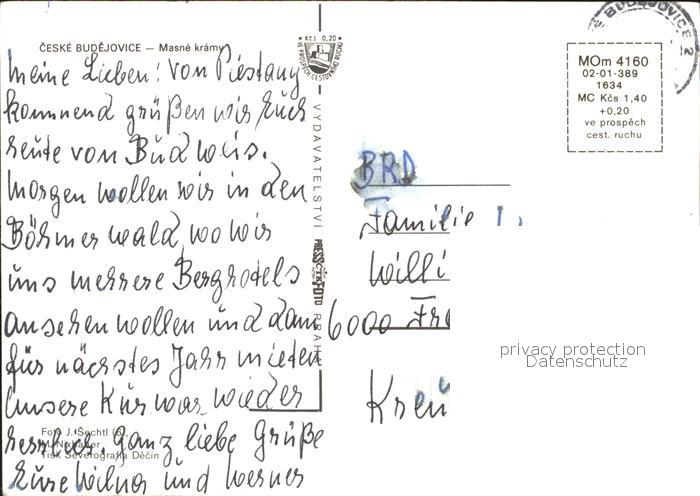 ČESKÉ BUDĚJOVICE — Masné krámy
Meine Lieben! Von Piestany
kommend grüßen wir Euch
heute von Budweis.
Morgen wollen wir in den
Böhmerwald, wo wir
uns mehrere Berghotels
ansehen wollen und dann
für nächstes Jahr mieten
Unsere Kur war wieder
herrlich. Ganz liebe Grüße
Eure und Werner
Foto J. Šechtl (6),
Tisk Severografia Děčín
Kčs 0,20
VE PROSPĚCH CESTOVNÍHO RUCHU
VYDAVATELSTVÍ PRESSFOTO PRAHA
BUDĚJOVICE 2
MOm 4160
02-01-389
1634
MC Kčs 1,40
+0,20
ve prospěch
cest. ruchu
BRD
Familie
Willi
6000 Fra
Kreu
privacy protection
Datenschutz